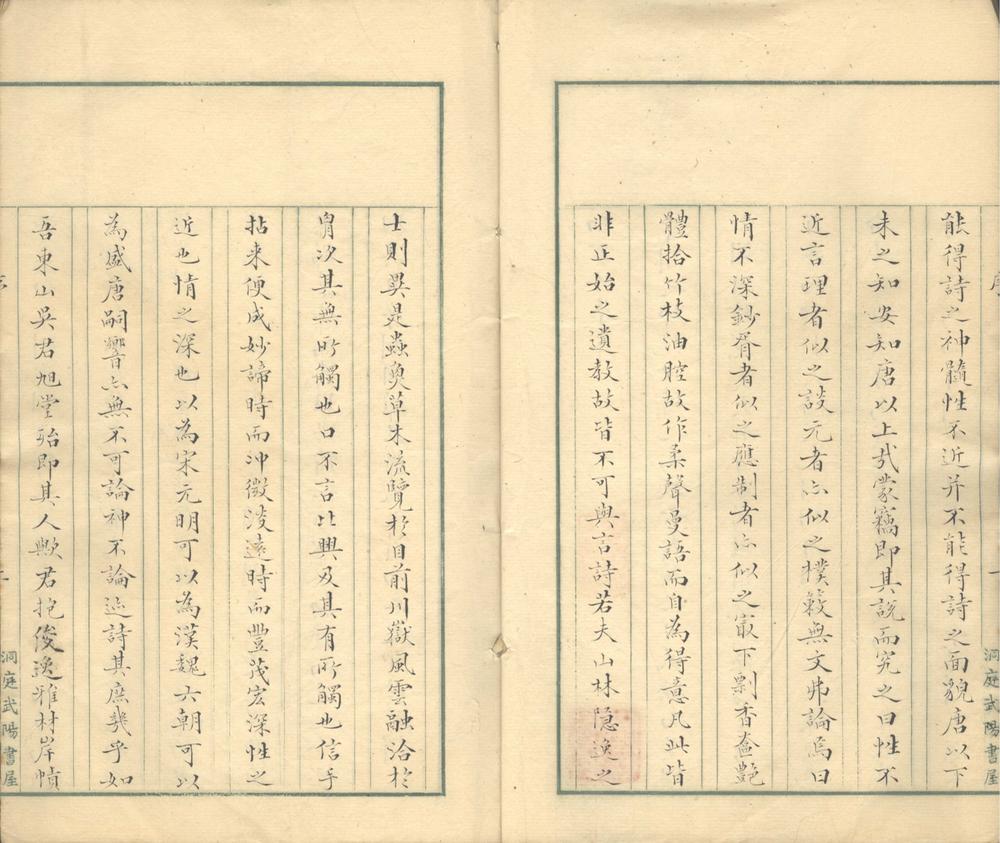 序
一
洞庭武陽書屋
能得詩之神髓性不近并不能得詩之面貌唐以下
未之知安知唐以上哉蒙竊即其說而究之曰性不
近言理者似之談元者亦似之樸簌無文弗論焉曰
情不深鈔胥者似之應制者亦似之最下剿香奩艷
體拾竹枝油腔故作柔聲曼語而自為得意凡此皆
非正始之遺教故皆不可與言詩若夫山林隱逸之
士則異是蟲奐草木流覽於目前川嶽風雲融洽於
胷次其無所觸也口不言比興及其有所觸也信手
拈来便成妙諦時而冲微淡遠時而豐茂宏深性之
近也情之深也以為宋元明可以為漢魏六朝可以
為盛唐嗣響亦無不可論神不論迹詩其庶幾乎如
吾東山吳君旭堂殆即其人歟君抱俊逸雅材岸幘
洞庭武陽書屋